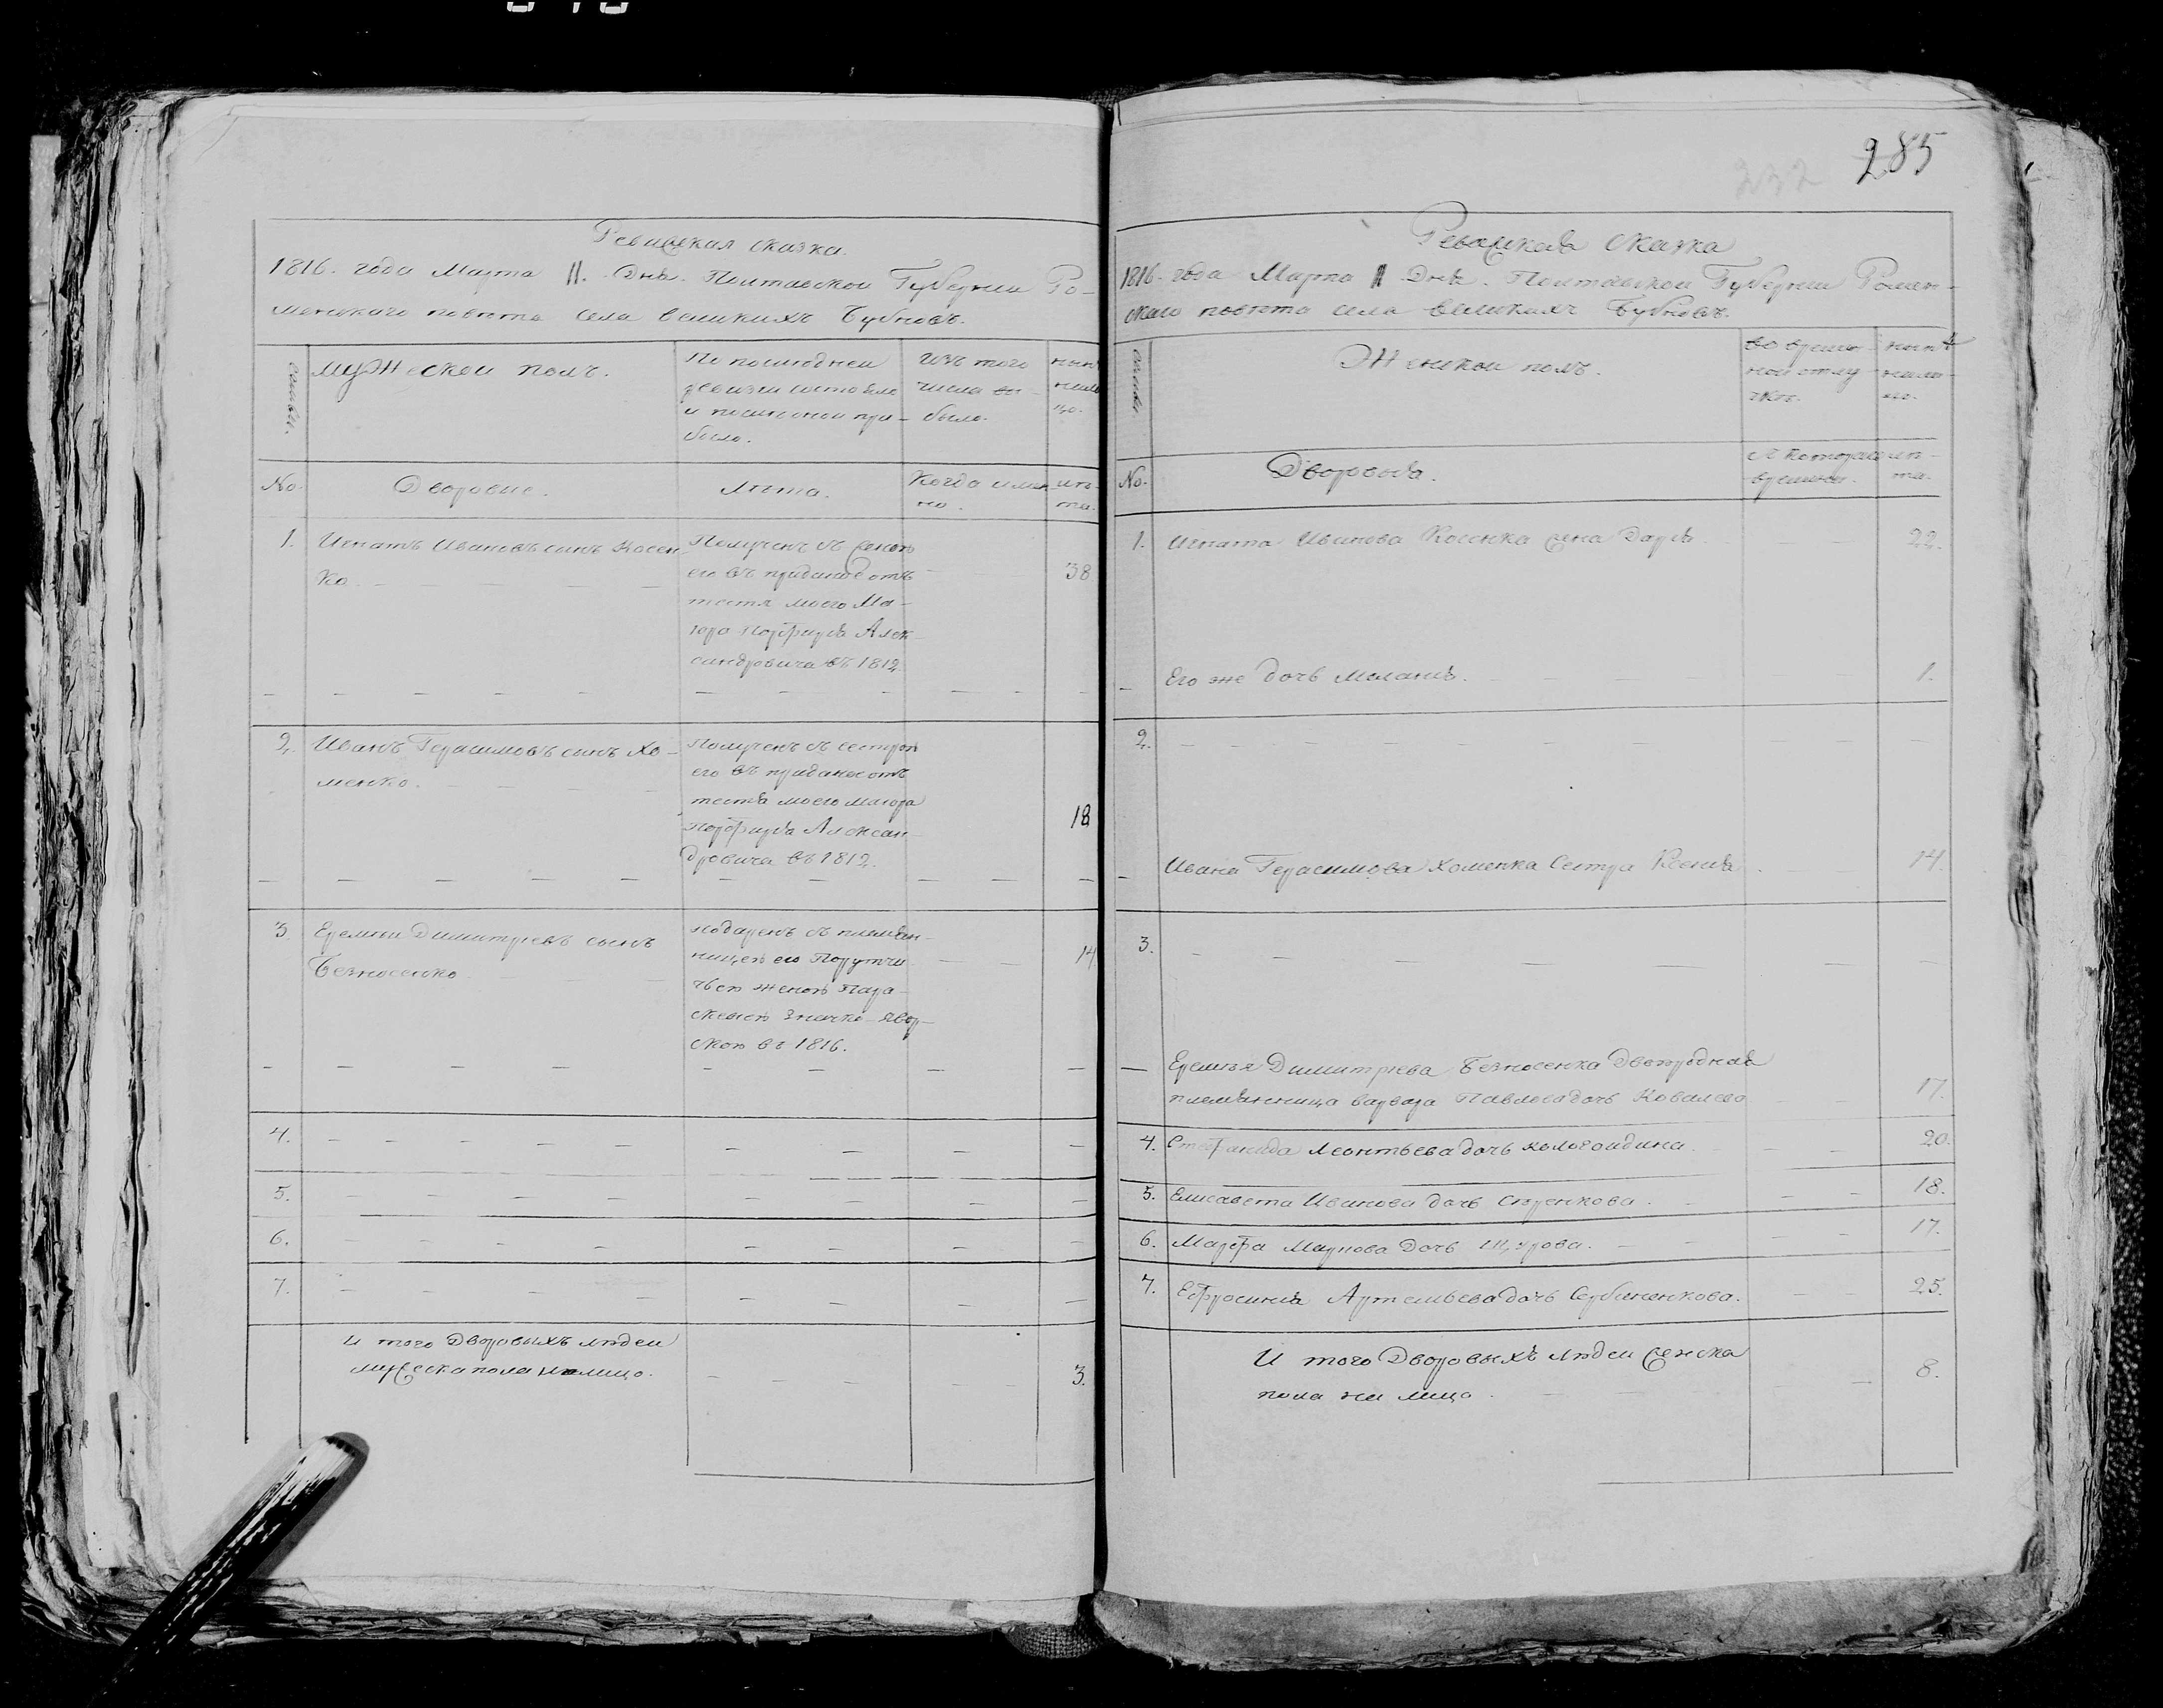 285
232
Ревижская сказка.
1816. года Марта 11. Дня. Полтавской Губернии Ро-
менскаго повѣта села Великихъ Бубновъ.
семьи.
мужеской полъ.
По последней
ревизіи состояло
и после оной при-
было.
Изъ того
числа вы-
было.
ныне
налицо.
No.
Дворовые.
лѣта.
Когда имен-
но.
лѣ-
та.
1.
Игнатъ Ивановъ сынъ Косен-
ко.
Полученъ съ женою
его въ приданое отъ
тестя моего Ма-
іора Порфирія Алек-
сандровича въ 1812
38
2.
Иванъ Герасимовъ сынъ Хо-
менко.
Полученъ съ сестрою
его въ приданое отъ
тестя моего маіора
Порфирія Алексан-
дровича въ 1812.
18
3.
Еремѣй Димитріевъ сынъ
Безносенко
подаренъ съ племян-
ницею его Порутчи-
чьею женою Пара-
скевіею Значко-Явор-
скою въ 1816.
14
4.
5.
6.
7.
И того Дворовыхъ людей
мужеска пола налицо.
3.
Ревижская Сказка
1816. года Марта 11 Дня. Полтавской Губернии Ромен-
скаго повѣта села Великихъ Бубновъ.
семьи
Женской полъ.
во времен-
ной отлу-
чкѣ.
нынѣ
нали-
цо.
No.
Дворовыя.
съ котораго
времени.
лѣ-
та.
1.
Игната Иванова Косенка жена Дарія
22.
Его же дочь Маланія.
1.
2.
Ивана Герасимова Хоменка Сестра Ксенія
14.
3.
Еремѣя Димитріева Безносенка Двоюродная
племянница Варвара Павлова дочь Ковалева
17.
4.
Стефанида Леонтьева дочь
20.
5.
Елисавета Иванова дочь
18.
6.
Марфа Маркова Дочь Щурова.
17.
7.
Ефросинія Артемьева дочь Сербиненкова.
25.
И того Дворовыхъ людей женска
пола на лицо.
8.